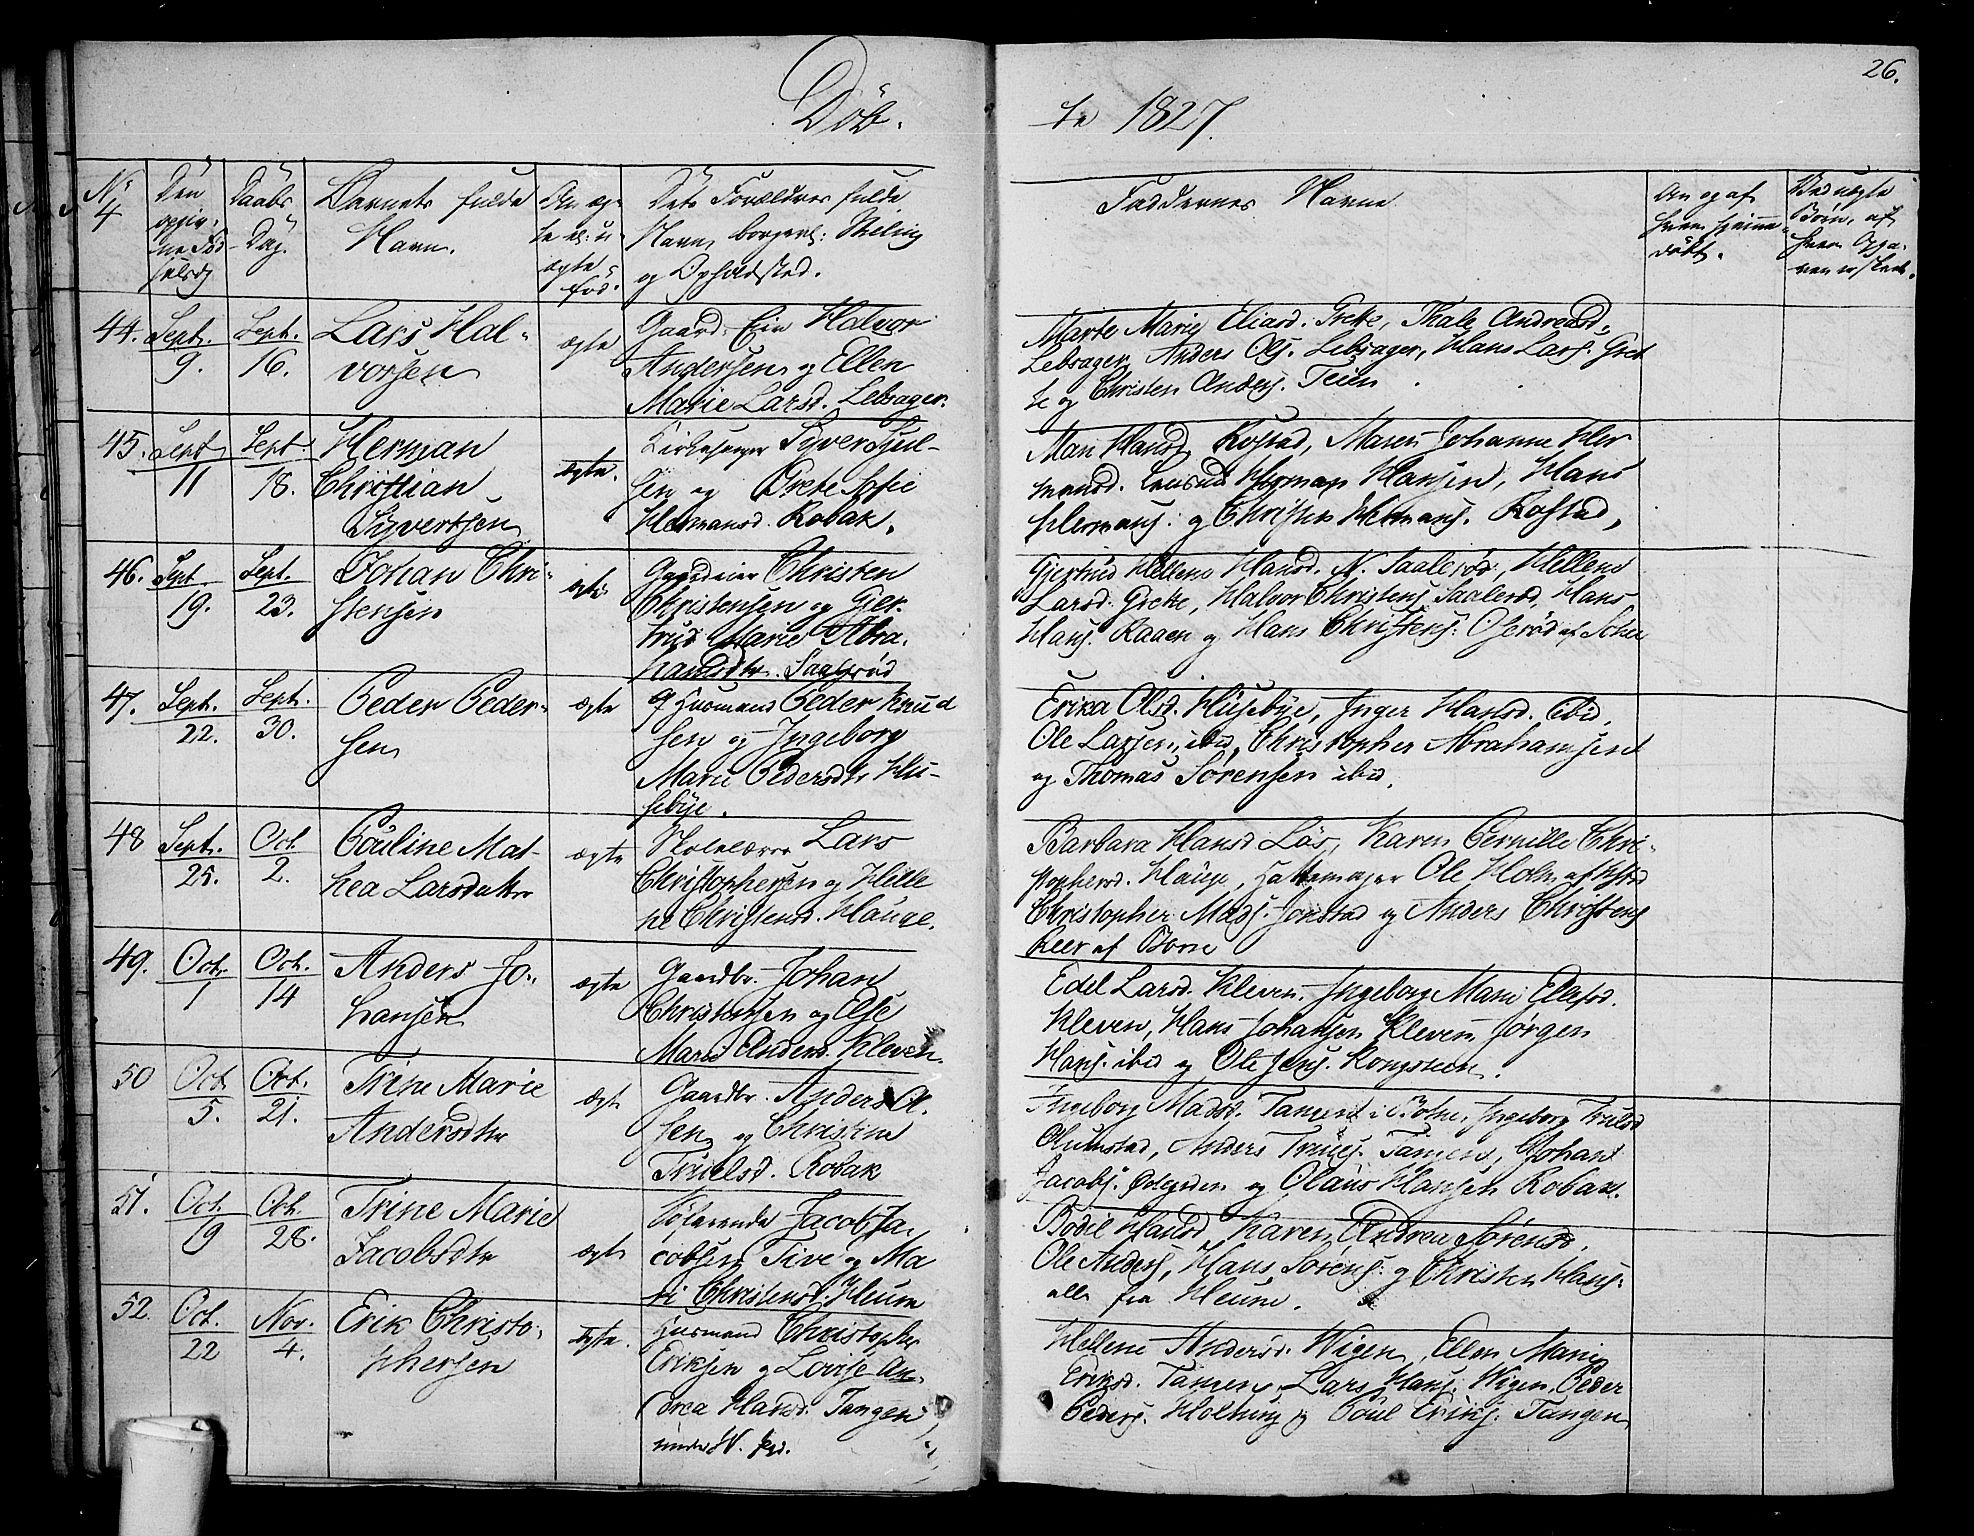 26.
Döb.
te 1827.
No
4
Den
opgiv-
ne Fød
selsdg
Daabs
-Dag.
Barnets fulde
Navn.
Om æg-
te el: u
ægte
fød.
Dets Forældres fulde
Navn, borgerl: Stilling
og Opholdsted.
Faddernes Navne
44.
Sept.
9.
Sept.
16.
Lars Hal-
vorsen
ægte
Gaard. Halvor
Andersen og Ellen
Marie Larsd. Lebsager.
Marte Marie Eliasd. Grette, Thale Andreasd.
Lebsager, Anders Ols. Lebsager, Hans Lars. Gret
te og Christen Anders. Teien
45.
Sept
11
Sept.
18.
Herman
Christian
Syvertsen
ægte.
Kirkesanger Syver
sen og Grete Sofie
Hermansd. Robak.
Mari Hansd. Rostad, Maren Johanne Her
mansd. Herman Hansen, Hans
Hermans: og Christen Hermans. Rostad,
46.
Sept.
19.
Sept.
23.
Johan Chri-
stensen
ægte
Gaardeier Christen
Christensen og Ger-
trud Marie Abra-
hamsdtr. Saalerød
Gjertrud Hellene Hansd. N. Saalerød, Hellene
Larsd. Grette, Halvor Christens. Saalerød, Hans
Hans. Raaen og Hans Christens. Oserød af
47.
Sept.
22.
Sept.
30.
Peder Peder-
sen
ægte
Husmand Peder Knud
sen og Ingeborg
Marie Pedersdtr Hu-
sebye.
Erika Olsd. Husebye, Inger Hansd. ibid,
Ole Larsen, ibid, Christopher Abrahamsen
og Thomas Sørensen ibid.
48
Sept.
25.
Oct.
2.
Pouline Mat-
hea Larsdatter
ægte
Skolelærer Lars
Christophersen og Helle
ne Christensd. Hauge.
Barbara Hansd Løs, Karen Pernille Chri-
stophersd. Hauge, Hattemager Ole Holm af
Christopher Mads. Jonstad og Anders Christens
Keer af Borre
49.
Oct.
1
Oct.
14
Anders Jo-
hansen
ægte
Gaardbr. Johan
Christensen og Else
Marie Anders. Kleven.
Edel Larsd. Kleven, Ingeborg Marie Ellefsd.
Kleven, Hans Johansen Kleven, Jørgen
Hans. ibid og Ole Jens. Kongsteen.
50
Oct
5.
Oct.
21.
Trine Marie
Andersdtr
ægte
Gaardbr. Anders Ol-
sen og Christine
Truelsd. Robak
Ingeborg Madsd. Tangen i Botne, Ingeborg Trulsd
Anders Truls. Tangen, Johan
Jacobs. og Olaus Hansen Robak.
51.
Oct.
19
Oct.
28.
Trine Marie
Jacobsdtr
ægte
Søfarende Jacob Ja-
cobsen Tive og Ma-
ri Christensd. Heum
Bodil Hansd. Karen Andrea Sørensd.
Ole Anders, Hans Sørens: og Christen Hans.
alle fra Heum.
52.
Oct.
22
Nov.
4.
Erik Christo-
phersen
ægte.
Husmand Christopher
Eriksen og Lovise An-
drea Hansd. Tangen
under
Hellene Andersd. Wigen, Ellen Marie
Eriksd. Tangen, Lars Hans. Wigen, Peder
Peders. Holtung og Poul Eriks. Tangen